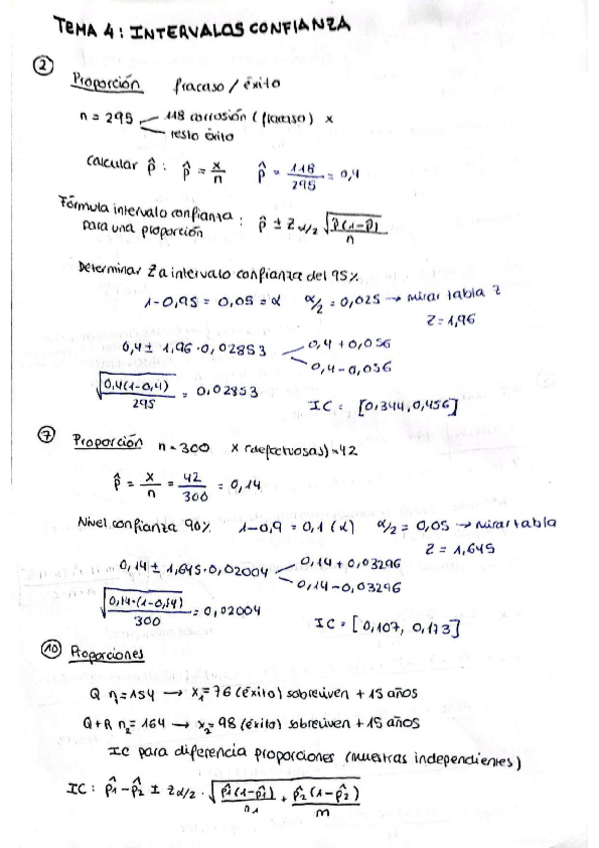 TEMA 4: INTERVALOS CONFIANZA
② Proporción fracaso / éxito
n = 295 118 corrosión (fracaso) x
resto éxito
calcular p̂ : p̂ = x/n p̂ = 118/295 = 0,4
Fórmula intervalo confianza : p̂ ± Z α/2 √(p̂(1-p̂)/n)
para una proporción
Determinar Z a intervalo confianza del 95%
1-0,95 = 0,05 = α α/2 = 0,025 → mirar tabla Z
Z = 1,96
0,4 ± 1,96 · 0,02853 0,4 + 0,056
0,4 - 0,056
√(0,4(1-0,4)/295) = 0,02853
IC = [0,344, 0,456]
⑦ Proporción n = 300 x (defectuosas) = 42
p̂ = x/n = 42/300 = 0,14
Nivel confianza 90% 1-0,9 = 0,1 (α) α/2 = 0,05 → mirar tabla
Z = 1,645
0,14 ± 1,645 · 0,02004 0,14 + 0,03296
0,14 - 0,03296
√(0,14·(1-0,14)/300) = 0,02004
IC = [0,107, 0,173]
⑩ Proporciones
Q n = 154 → x₁ = 76 (éxito) sobreviven + 15 años
Q+R n₂ = 164 → x₂ = 98 (éxito) sobreviven + 15 años
IC para diferencia proporciones (muestras independientes)
IC : p̂₁ - p̂₂ ± Z α/2 · √(p̂₁(1-p̂₁)/n₁ + p̂₂(1-p̂₂)/m)